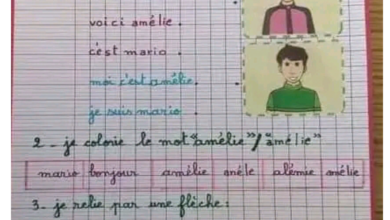 voici amélie .
c'est mario .
moi c'est amélie .
je suis mario .
2 _ je colorie le mot "amélie" / "amélie"
mario bonjour amélie anéle alémie amélie
3 _ je relie par une flèche :